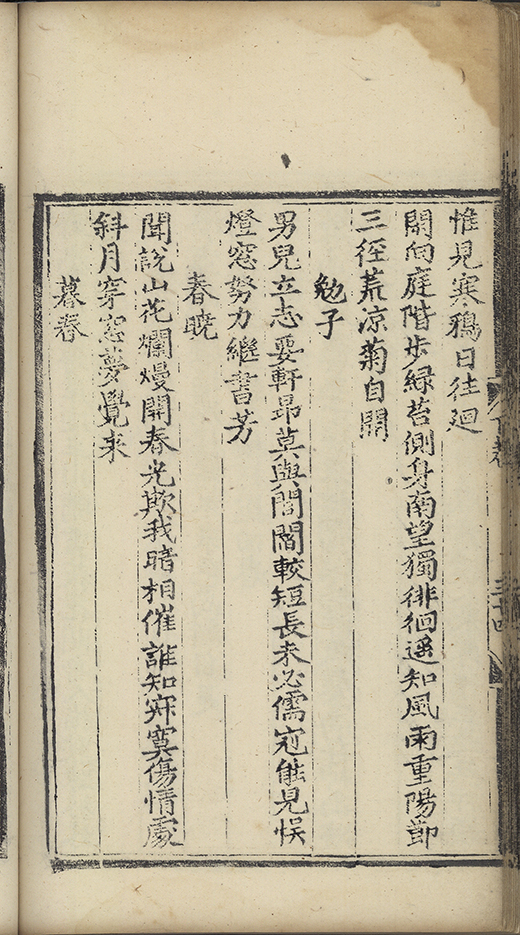 惟見寒鴉日往廻
閒向庭階步緑苔側身南望獨徘徊遥知風雨重陽節
三徑荒凉菊自開
勉子
男兒立志要軒昂莫與閭閻較短長未必儒冠能見悮
燈窓努力繼書芳
春曉
聞說山花爛熳開春光欺我暗相催誰知寂寞傷情處
斜月穿窓夢覺来
暮春